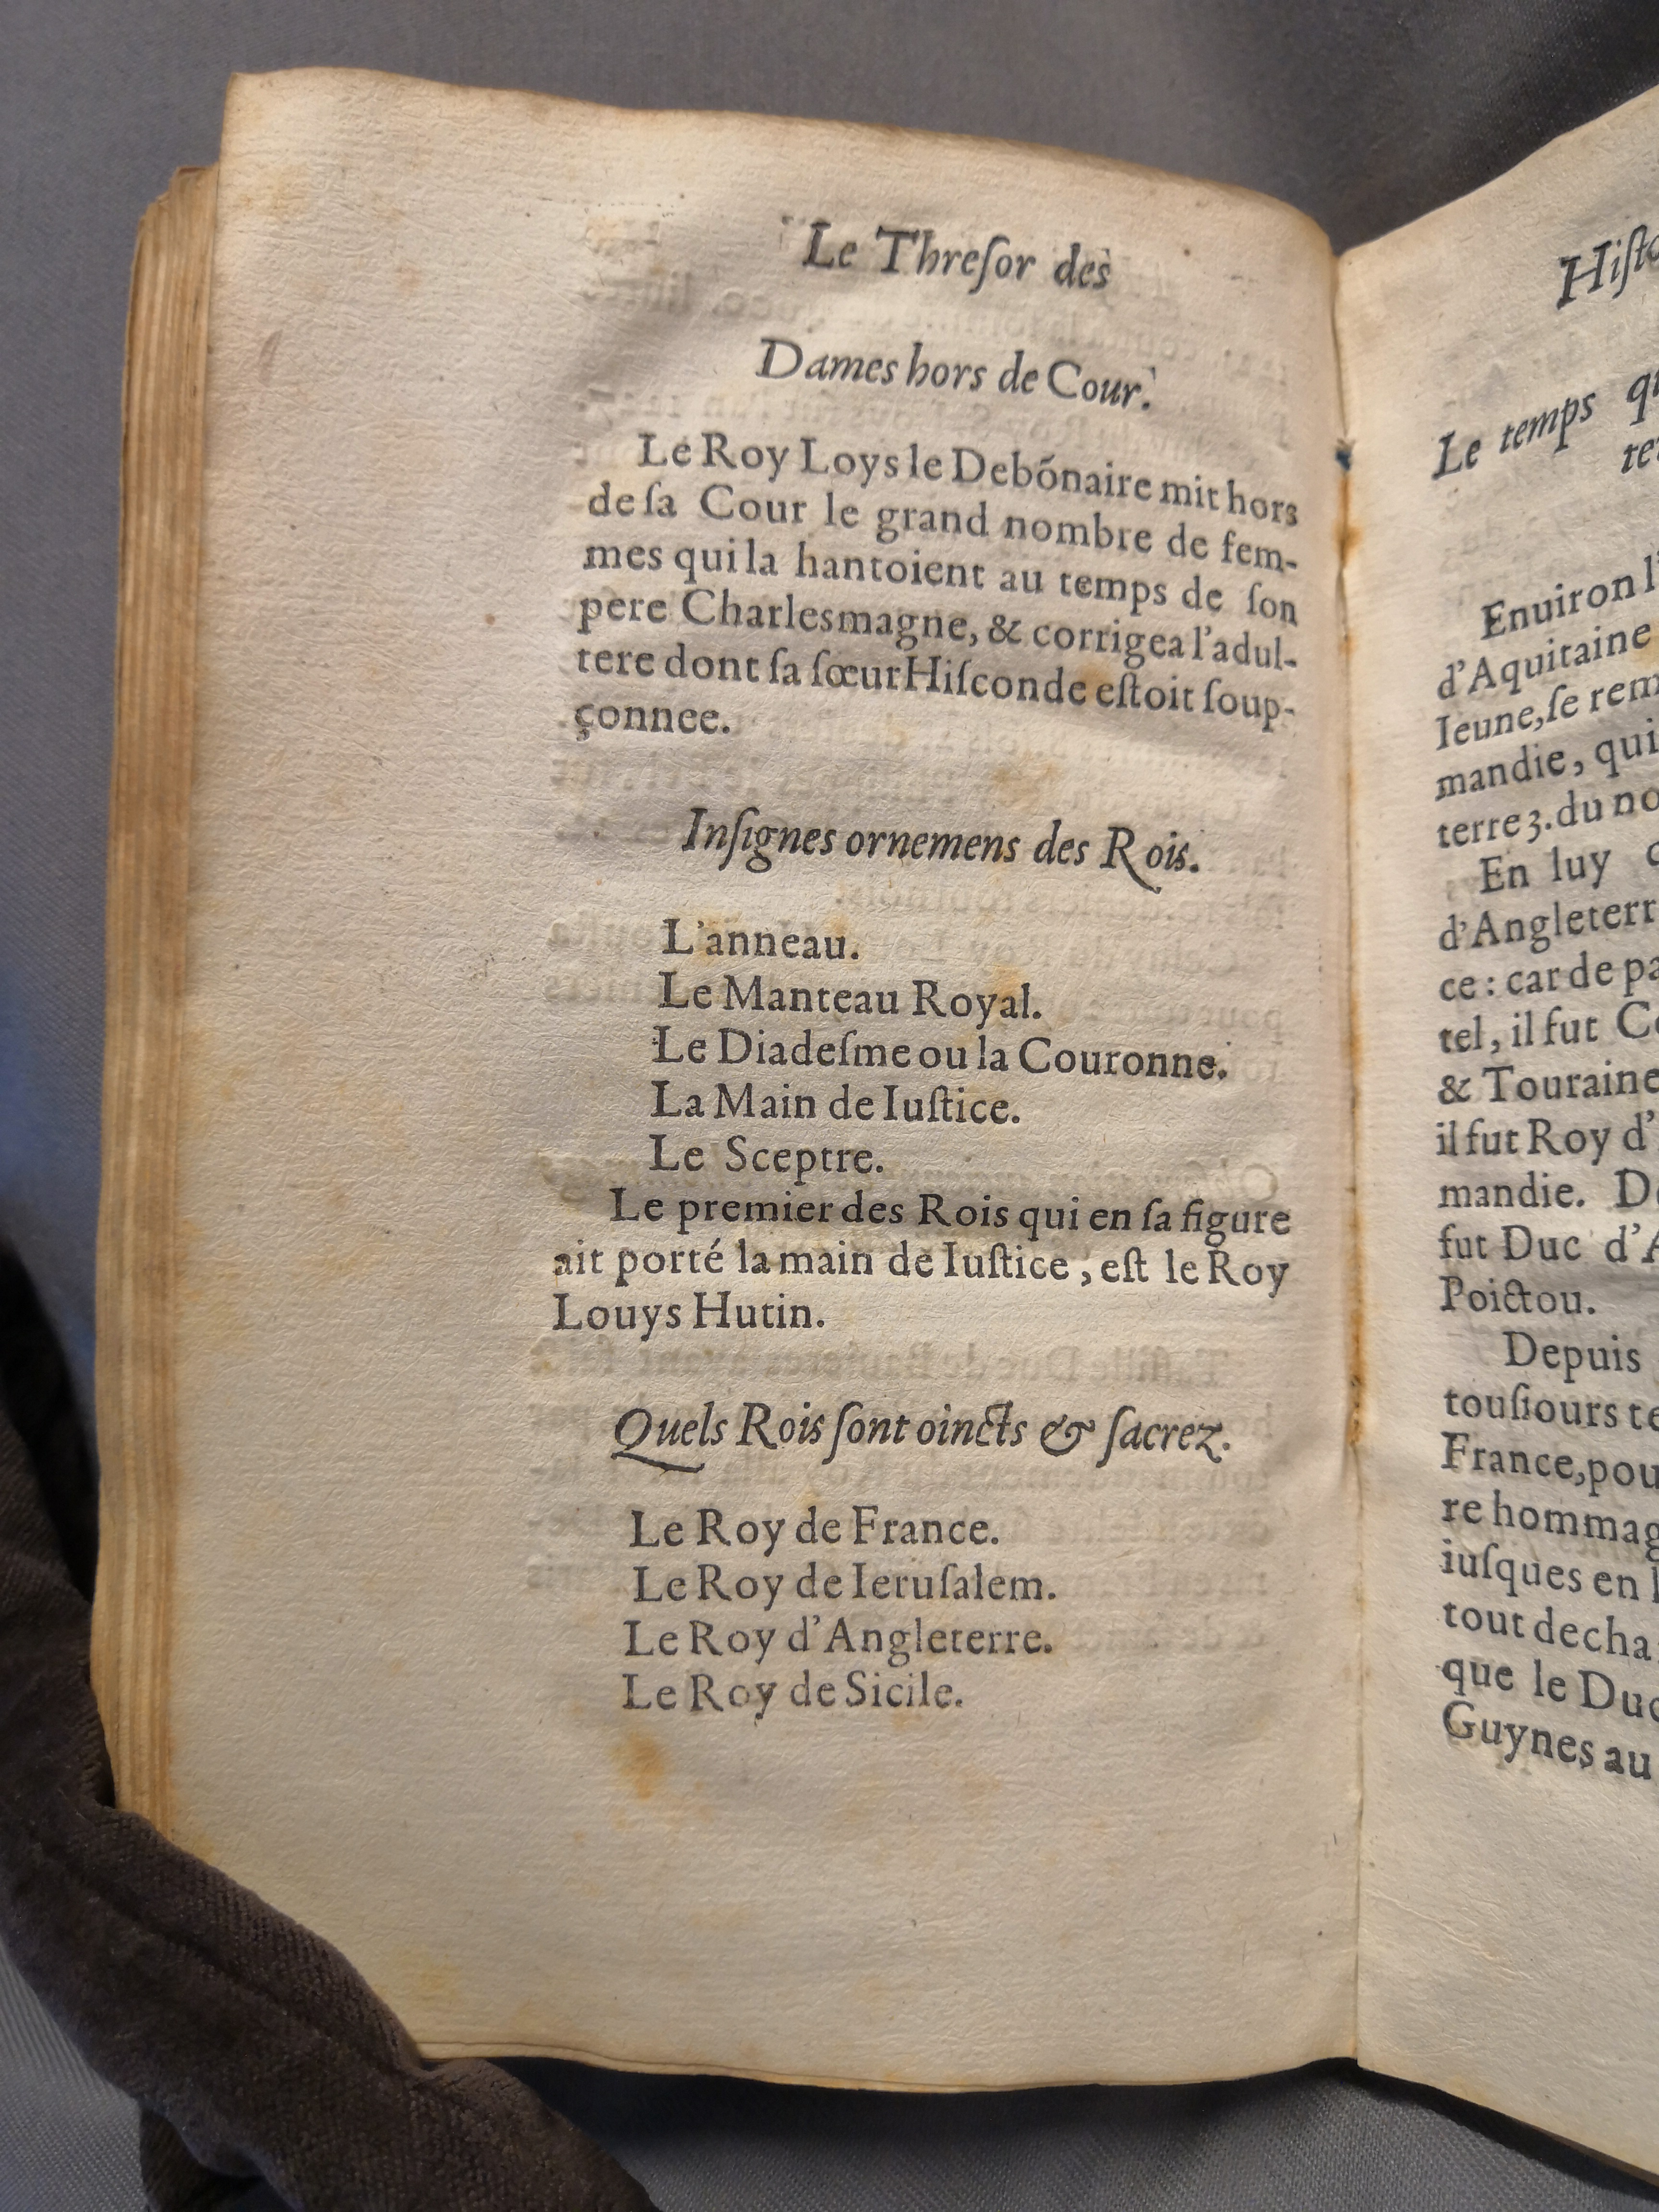 Le Threſor des
Dames hors de Cour.
Le Roy Loys le Debōnaire mit hors
de ſa Cour le grand nombre de fem-
mes qui la hantoient au temps de ſon
pere Charlesmagne, & corrigea l'adul-
tere dont ſa ſœur Hiſconde eſtoit ſoup-
çonnee.
Inſignes ornemens des Rois.
L'anneau.
Le Manteau Royal.
Le Diadeſme ou la Couronne.
La Main de Iuſtice.
Le Sceptre.
Le premier des Rois qui en ſa figure
ait porté la main de Iuſtice, eſt le Roy
Louys Hutin.
Quels Rois ſont oincts & ſacrez.
Le Roy de France.
Le Roy de Ieruſalem.
Le Roy d'Angleterre.
Le Roy de Sicile.
Le temps
Enuiron
d'Aquitaine
Ieune, ſe
mandie, qui
terre 3. du
En luy
ce: car de
tel, il fut
& Touraine
il fut Roy
mandie.
fut Duc
Poictou.
Depuis
touſiours
France,
iuſques en
tout
que le
Guynes au